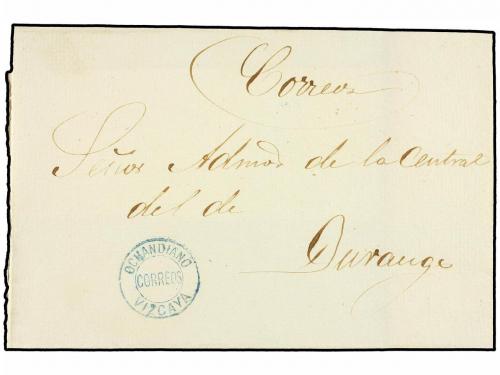 Correos
Señor Admor de la Central
del de
Durango
OCHANDIANO
CORREOS
VIZCAYA